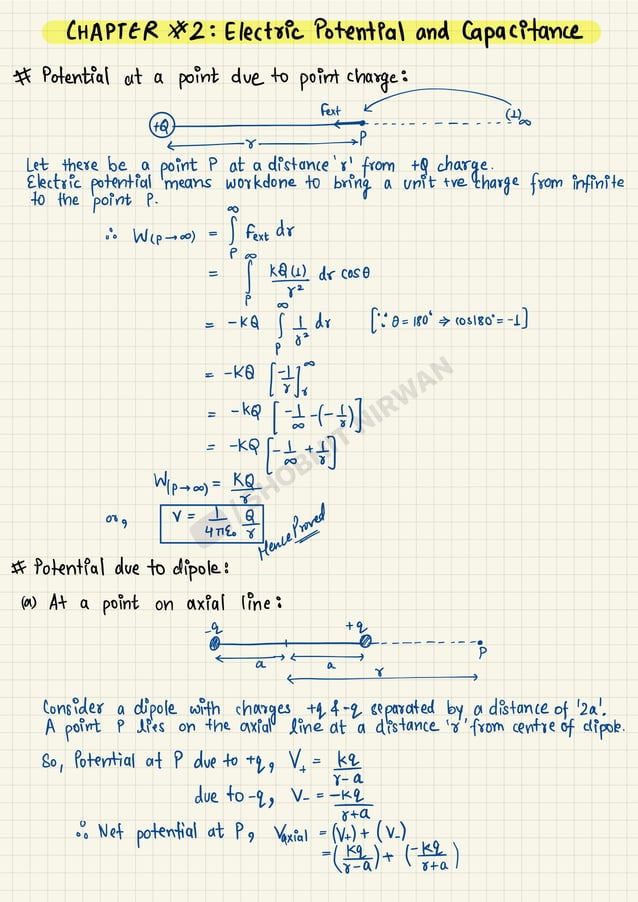 CHAPTER #2: Electric Potential and Capacitance
# Potential at a point due to point charge:
Fext
(1)
∞
+Q
P
r
Let there be a point P at a distance 'r' from +Q charge.
Electric potential means workdone to bring a unit +ve charge from infinite
to the point P.
∴ W(P→∞) = ∫_P^∞ Fext dr
= ∫_P^∞ KQ(1)/r² dr cosθ
= -KQ ∫_P^∞ 1/r² dr [∵ θ = 180° ⇒ cos180° = -1]
= -KQ [-1/r]_r^∞
= -KQ [-1/∞ -(-1/r)]
= -KQ [-1/∞ + 1/r]
W(P→∞) = KQ/r
or, V = 1/4πε₀ Q/r
Hence Proved
SHOBHIT NIRWAN
# Potential due to dipole:
(a) At a point on axial line:
-q +q
P
a a
r
Consider a dipole with charges +q & -q separated by a distance of '2a'.
A point P lies on the axial line at a distance 'r' from centre of dipole.
So, Potential at P due to +q, V₊ = kq/r-a
due to -q, V₋ = -kq/r+a
∴ Net potential at P, Vaxial = (V₊) + (V₋)
= (kq/r-a) + (-kq/r+a)